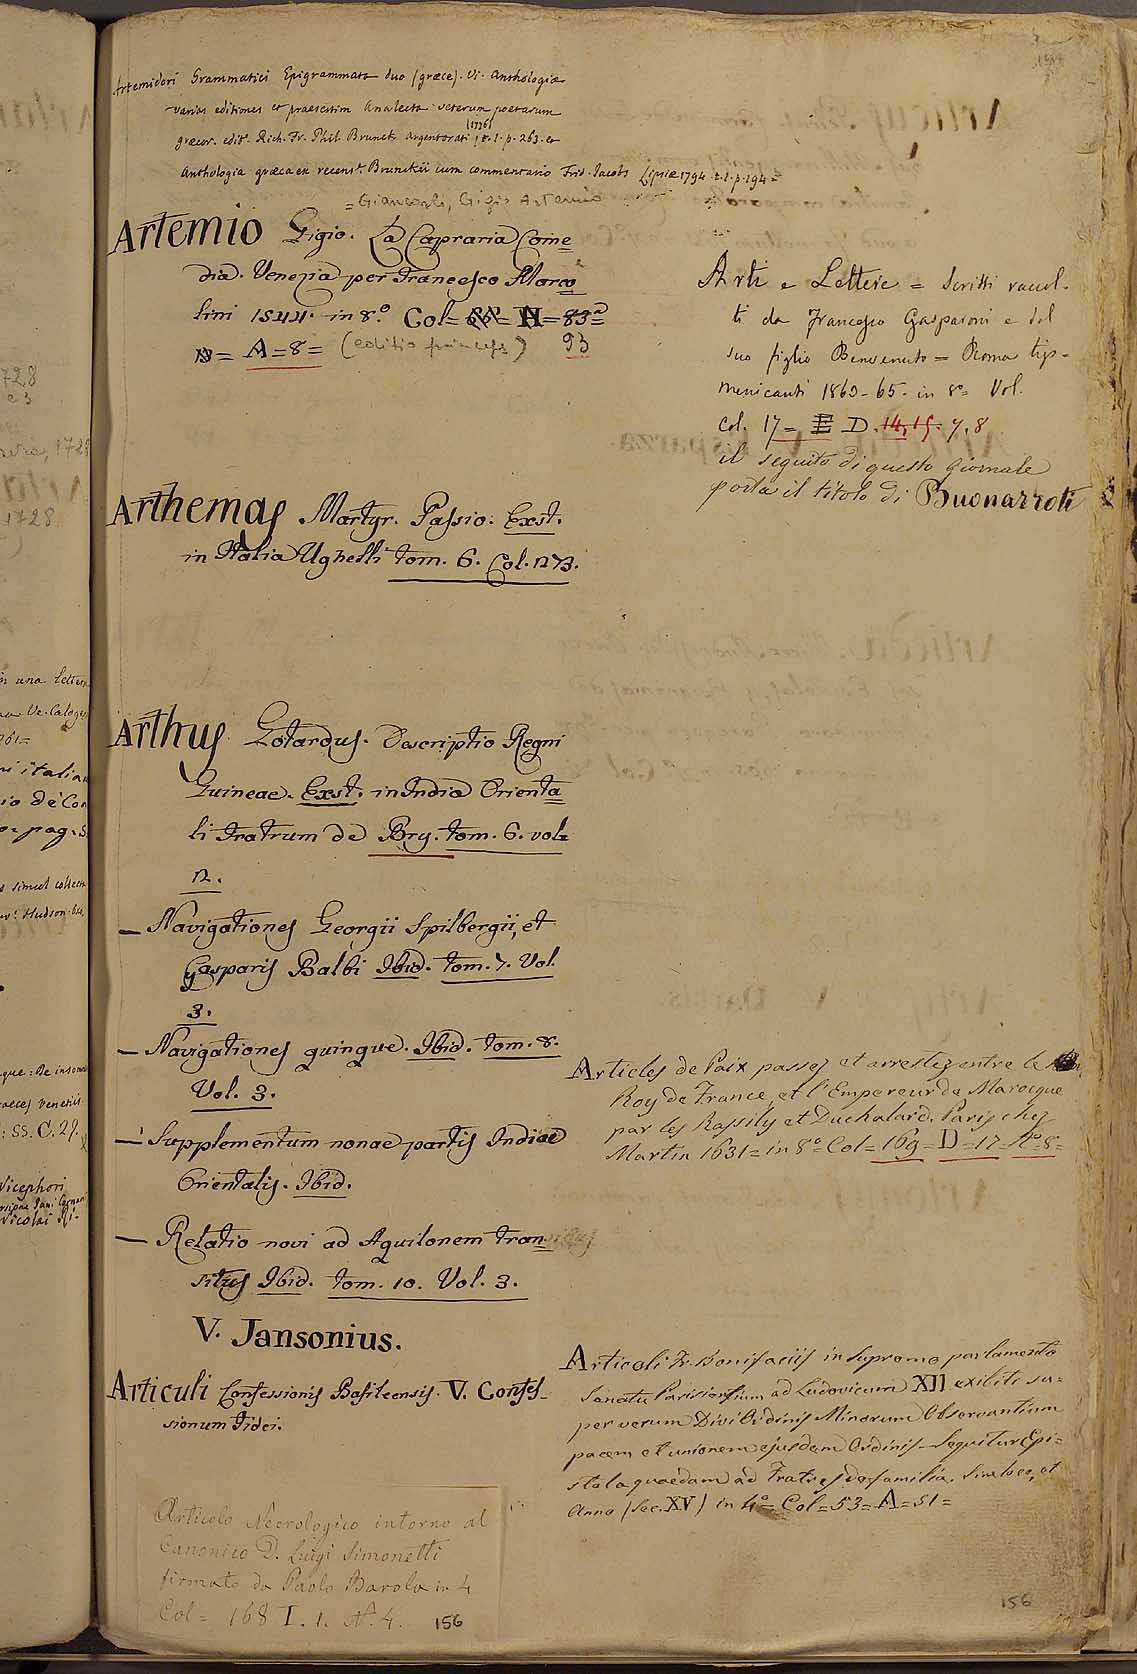 Artemidori Grammatici Epigrammata duo (græce). Vi. Anthologiæ
varias editiones et praesertim Analecta veterum poetarum
græcor. edit.s Rich. Fr. Phil. Brunck Argentorati (1776) t. 1. p. 263. et
Anthologia græca ex recens.e Brunckii cum commentario Frid. Jacobs Lipsiæ 1794. t. 1. p. 194 =
= Giancarli, Gigio Artemio
Artemio Gigio. La Capraria Come=
dia. Venezia per Francesco Marco=
lini 1544. in 8.o Col= N= 83=
A = 8 = (editio princeps) 93
Arthemas Martyr. Passio. Exst.
in Italia Ughelli tom. 6. Col. 1273.
Arthus Gotardus. Descriptio Regni
Guineae. Exst. in India Orienta=
li Fratrum de Bry. tom. 6. vol=
2.
— Navigationes Georgii Spilbergii, et
Gasparis Balbi Ibid. tom. 7. Vol.
3.
— Navigationes quinque. Ibid. tom. 8.
Vol. 3.
— Supplementum nonae partis Indiae
Orientalis. Ibid.
— Relatio novi ad Aquilonem tran=
situs Ibid. tom. 10. Vol. 3.
V. Jansonius.
Articuli Confessionis Basileensis. V. Confes=
sionum Fidei.
Articolo Necrologico intorno al
Canonico D. Luigi Simonetti
firmato da Paolo Barola in 4
Col= 168 I. 1. No 4. 156
Arti e Lettere = Scritti raccol-
ti da Francesco Gasparoni e del
suo figlio Benvenuto = Roma tip-
menicanti 1863-65. in 8o= Vol.
col. 17 = E D. 14, 15. 7, 8
il seguito di questo giornale
porta il titolo di Buonarroti
Articles de Paix passez et arrestez entre le
Roy de France, et l'Empereur de Marocque
par les Rassilly et Duchalard. Paris chez
Martin 1631 = in 8o= Col= 169 = D = 17 = No 8=
Articoli Fr. Bonifaciis in supremo parlamento
Senatu Parisiorsium ad Ludovicum XII exibiti su=
per verum Divi Ordinis Minorum Observantium
pacem et unionem ejusdem Ordinis. Sequitur Epi=
stola quaedam ad Fratres de familia. Sine loco, et
Anno (Sec. XV) in 4o= Col= 53= A= 51=
156